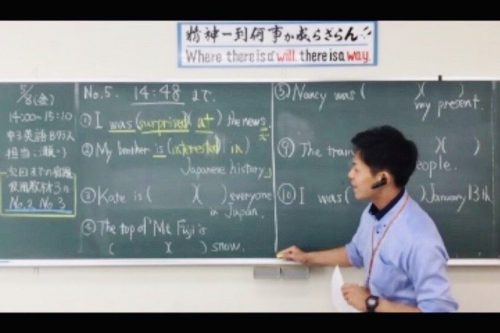 精神一到何事か成らざらん
Where there is a will, there is a way.
5/8(金)
14:00〜15:10
中3英語Bクラス
担当:
次回までの宿題
使用教材3の
No.2 No.3
No.5. 14:48 まで
① I was (surprised)( at ) the news.
② My brother is (interested)( in )
Japanese history.
③ Kate is ( )( ) everyone
in Japan.
④ The top of Mt. Fuji is
( )( ) snow.
Nancy was ( )( )
my present.
⑨ The train
people.
⑩ I was ( ) January 13th